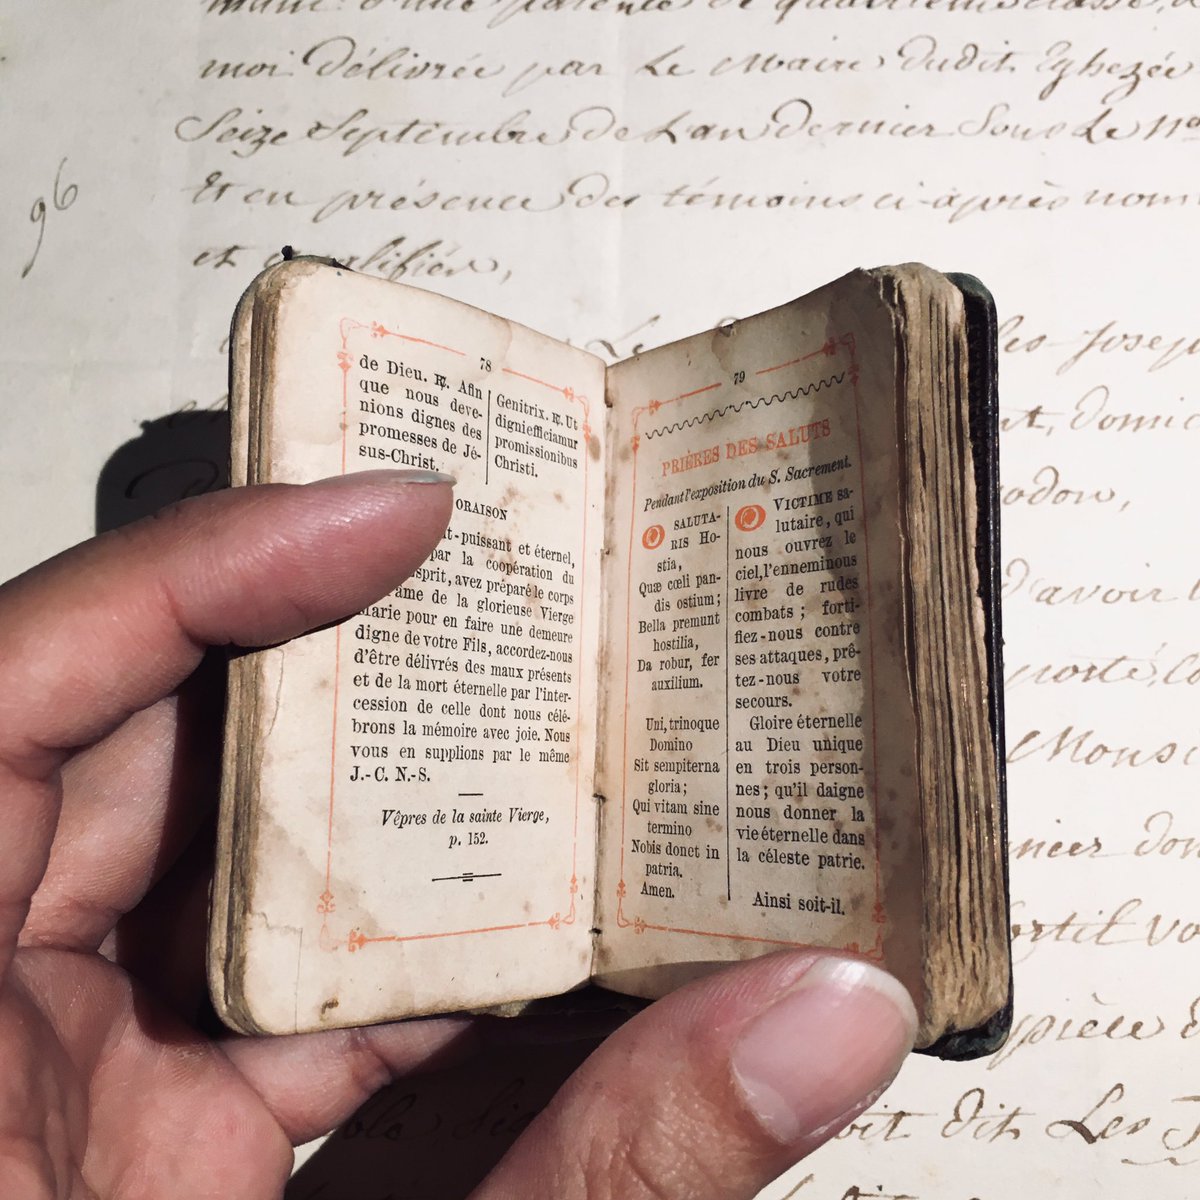 moi délivrée par Le Maire dudit Eghezée
Seize Septembre de Lan dernier Sous Le
Et en présence des témoins ci-après
et
96
78
de Dieu. ℟. Afin
que nous deve-
nions dignes des
promesses de Jé-
sus-Christ.
Genitrix. ℟. Ut
digniefficiamur
promissionibus
Christi.
ORAISON
-puissant et éternel,
par la coopération du
avez préparé le corps
de la glorieuse Vierge
pour en faire une demeure
digne de votre Fils, accordez-nous
d'être délivrés des maux présents
et de la mort éternelle par l'inter-
cession de celle dont nous célé-
brons la mémoire avec joie. Nous
vous en supplions par le même
J.-C. N.-S.
Vêpres de la sainte Vierge,
p. 152.
79
PRIÈRES DES SALUTS
Pendant l'exposition du S. Sacrement.
O SALUTA-
RIS Ho-
stia,
Quæ cœli pan-
dis ostium;
Bella premunt
hostilia,
Da robur, fer
auxilium.
Uni, trinoque
Domino
Sit sempiterna
gloria;
Qui vitam sine
termino
Nobis donet in
patria.
Amen.
O VICTIME sa-
lutaire, qui
nous ouvrez le
ciel, l'ennemi nous
livre de rudes
combats; forti-
fiez-nous contre
ses attaques, prê-
tez-nous votre
secours.
Gloire éternelle
au Dieu unique
en trois person-
nes; qu'il daigne
nous donner la
vie éternelle dans
la céleste patrie.
Ainsi soit-il.
d'avoir
pièce
dit Les